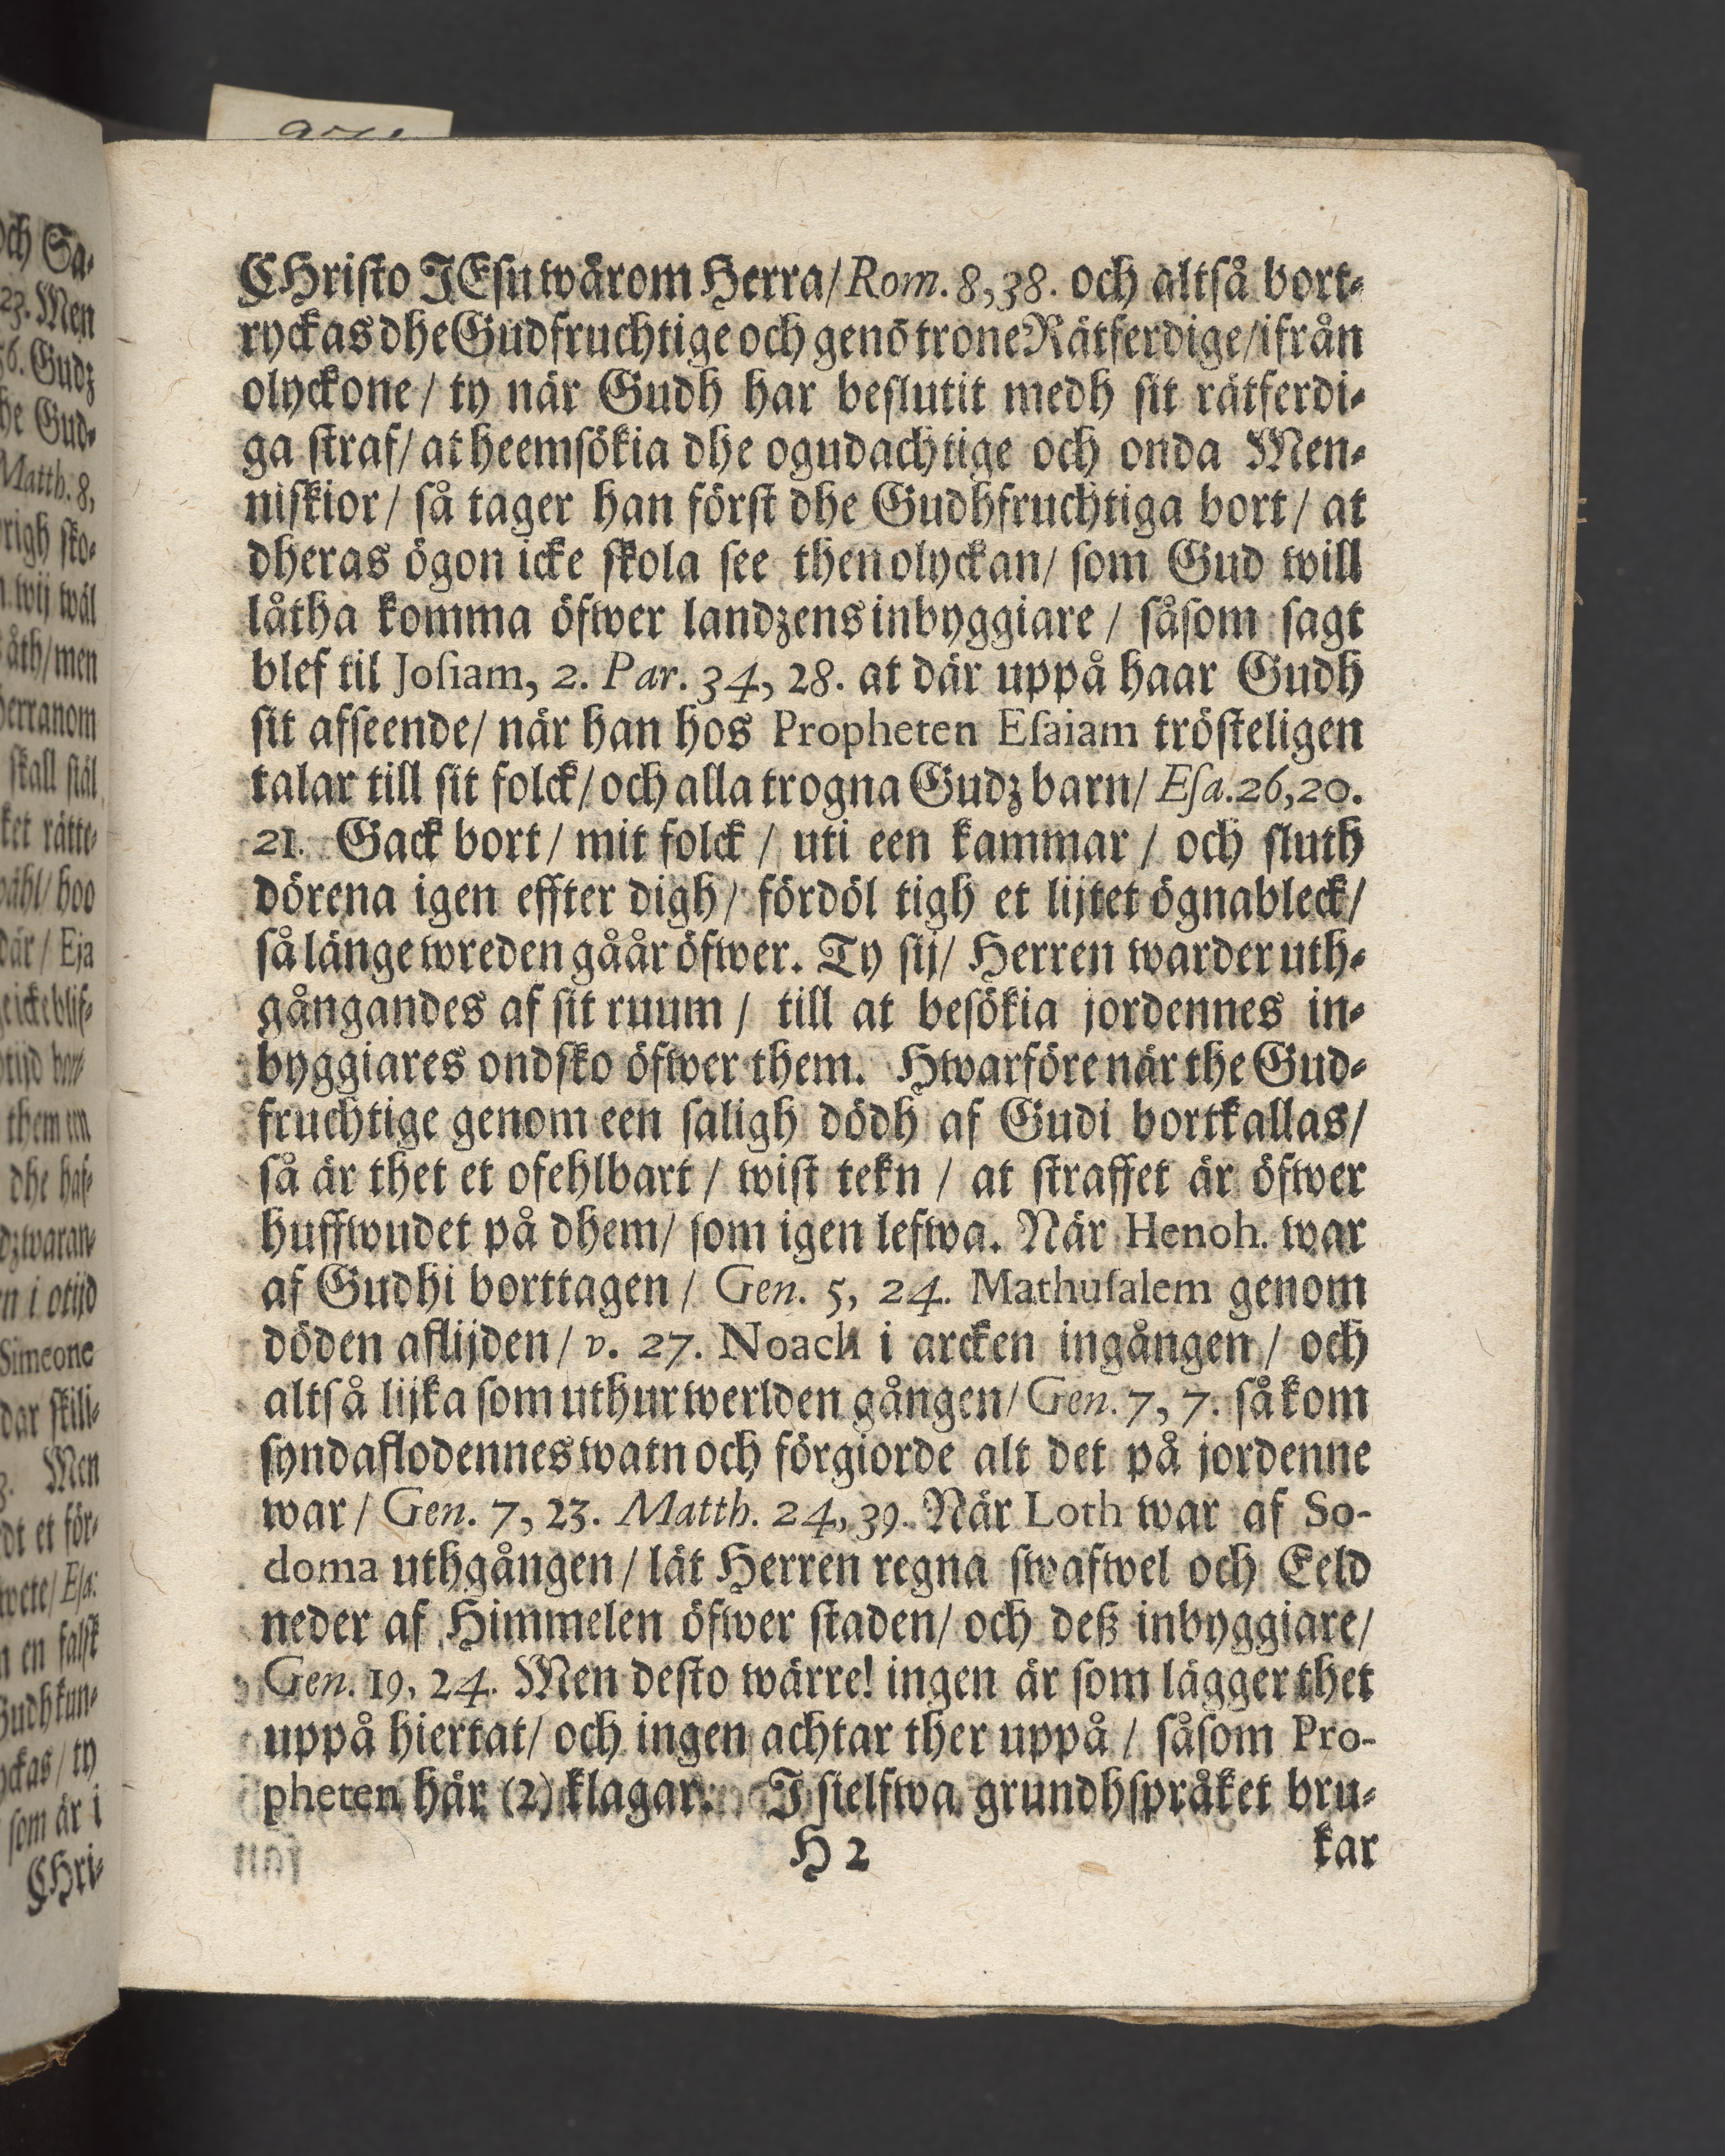 CHristo JEsu wårom Herra/ Rom. 8, 38. och altså bort-
ryckas dhe Gudfruchtige och genõ trone Rätferdige/ ifrån
olyckone / ty när Gudh har beslutit medh sit rätferdi-
ga straf/ at heemsökia dhe ogudachtige och onda Men-
niskior/ så tager han först dhe Gudhfruchtiga bort/ at
dheras ögon icke skola see then olyckan/ som Gud will
låtha komma öfwer landzens inbyggiare / såsom sagt
blef til Josiam, 2. Par. 34, 28. at där uppå haar Gudh
sit afseende/ när han hos Propheten Esaiam trösteligen
talar till sit folck/ och alla trogna Gudz barn/ Esa. 26, 20.
21. Gack bort / mit folck / uti een kammar / och sluth
dörena igen effter digh/ fördöl tigh et lijtet ögnableck/
så länge wreden gåår öfwer. Ty sij/ Herren warder uth-
gångandes af sit ruum / till at besökia jordennes in-
byggiares ondsko öfwer them. Hwarföre när the Gud-
fruchtige genom een saligh dödh af Gudi bortkallas/
så är thet et ofehlbart / wist tekn / at straffet är öfwer
huffwudet på dhem/ som igen lefwa. När Henoh. war
af Gudhi borttagen / Gen. 5, 24. Mathusalem genom
döden aflijden/ v. 27. Noach i arcken ingången / och
altså lijka som uthur werlden gången/ Gen. 7, 7. så kom
syndaflodennes watn och förgiorde alt det på jordenne
war / Gen. 7, 23. Matth. 24, 39. När Loth war af So-
doma uthgången / lät Herren regna swafwel och Eeld
neder af Himmelen öfwer staden/ och deß inbyggiare/
Gen. 19, 24. Men desto wärre! ingen är som lägger thet
uppå hiertat/ och ingen achtar ther uppå / såsom Pro-
pheten här (2) klagar. J sielfwa grundhspråket bru-
H 2 kar